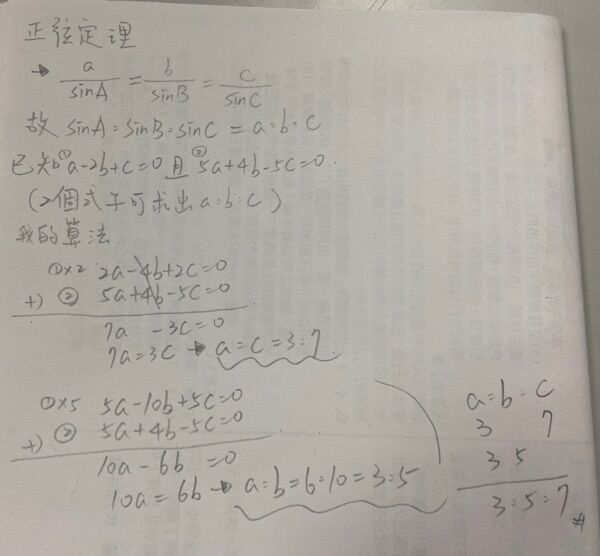 正弦定理
→ a/sinA = b/sinB = c/sinC
故 sinA:sinB:sinC = a:b:c
已知①a-2b+c=0且②5a+4b-5c=0.
(2個式子可求出a:b:c)
我的算法
①×2 2a-4b+2c=0
+) ② 5a+4b-5c=0
7a -3c=0
7a=3c → a:c=3:7
①×5 5a-10b+5c=0
+) ② 5a+4b-5c=0
10a-6b =0
10a=6b → a:b=6:10=3:5
a:b:c
3 7
3 5
3:5:7 #